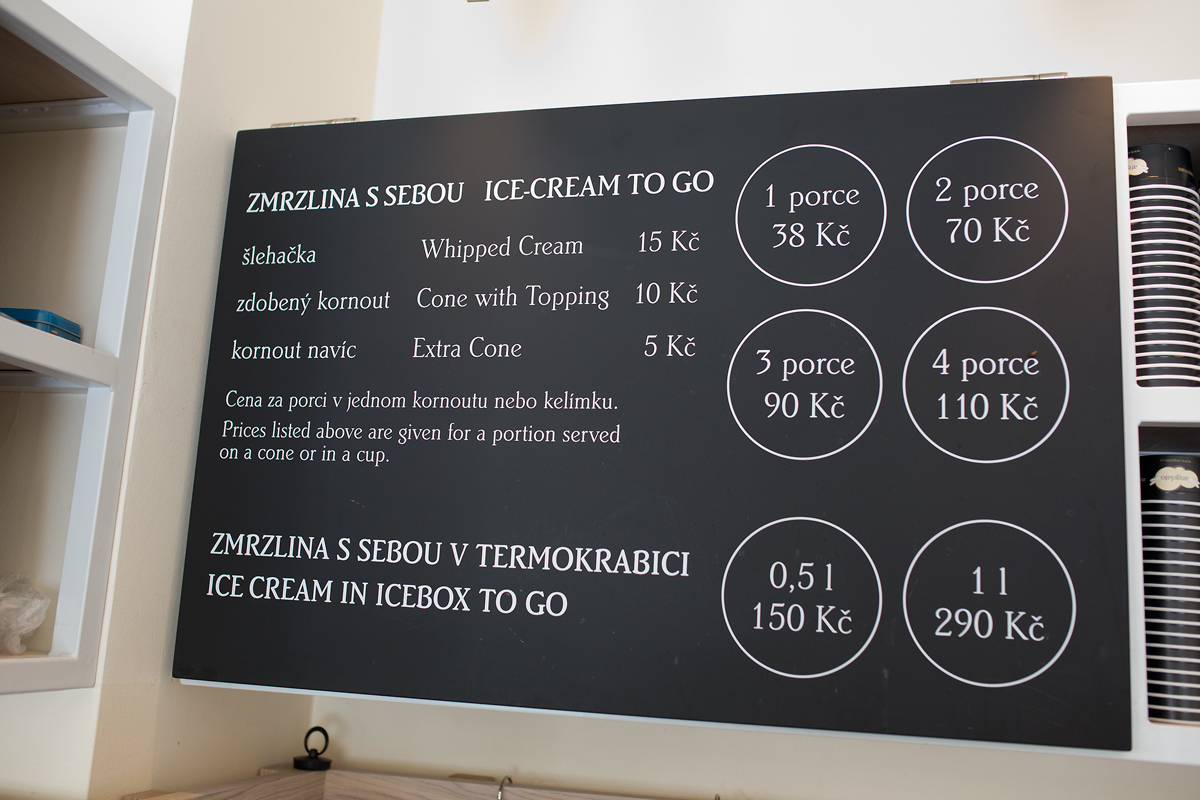 ZMRZLINA S SEBOU ICE-CREAM TO GO
šlehačka Whipped Cream 15 Kč
zdobený kornout Cone with Topping 10 Kč
kornout navíc Extra Cone 5 Kč
Cena za porci v jednom kornoutu nebo kelímku.
Prices listed above are given for a portion served
on a cone or in a cup.
1 porce
38 Kč
2 porce
70 Kč
3 porce
90 Kč
4 porce
110 Kč
ZMRZLINA S SEBOU V TERMOKRABICI
ICE CREAM IN ICEBOX TO GO
0,5 l
150 Kč
1 l
290 Kč